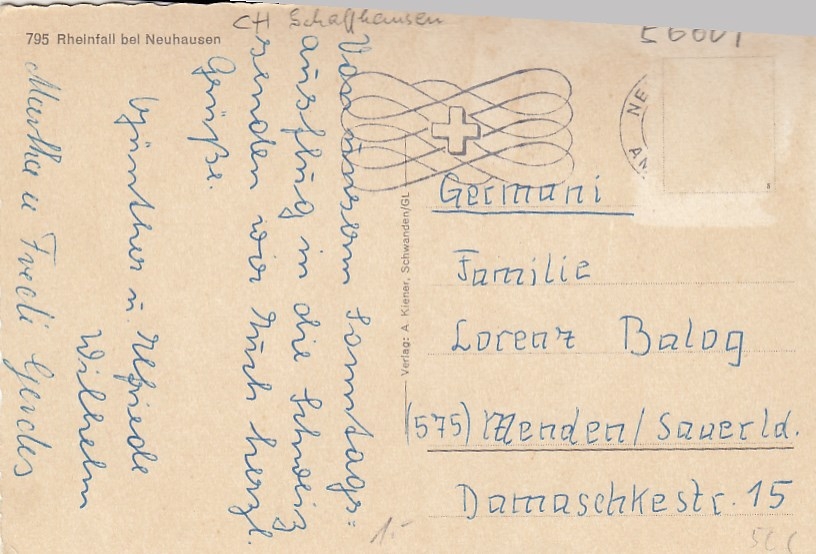 CH Schaffhausen
795 Rheinfall bei Neuhausen
Von unserem Sonntags=
ausflug in die Schweiz
senden wir Euch herzl.
Grüße.
Günther u. Elfriede
Wilhelm
Martha u Fredi Gerdes
Verlag: A. Kiener, Schwanden/GL
NE
AM
Germani
Familie
Lorenz Balog
(575) Menden/Sauerld.
Damaschkestr. 15
1.-